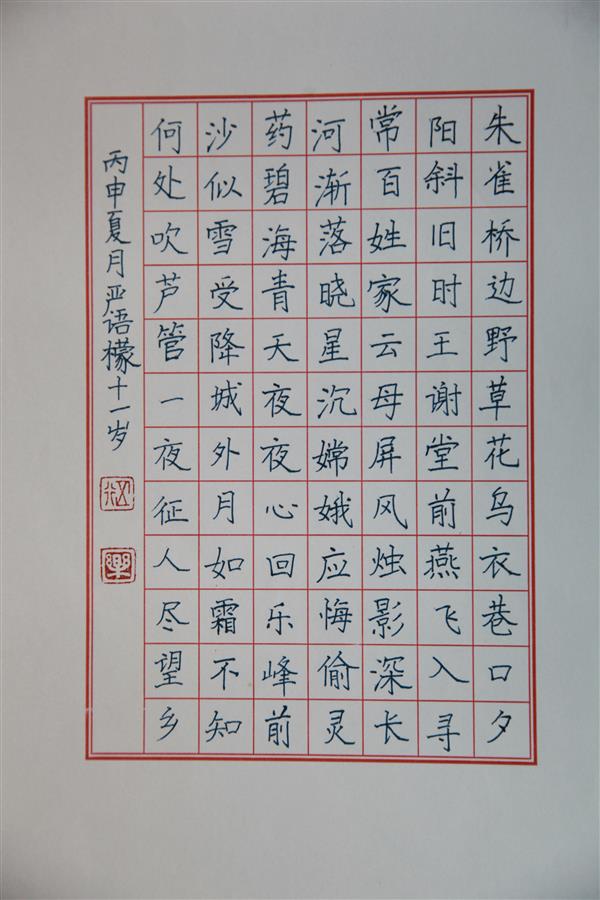 朱雀桥边野草花乌衣巷口夕
阳斜旧时王谢堂前燕飞入寻
常百姓家云母屏风烛影深长
河渐落晓星沉嫦娥应悔偷灵
药碧海青天夜夜心回乐峰前
沙似雪受降城外月如霜不知
何处吹芦管一夜征人尽望乡
丙申夏月严语檬十一岁